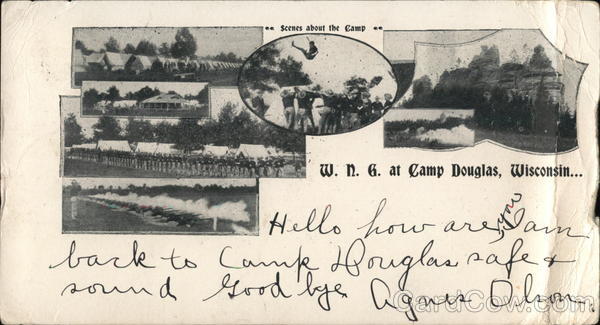 Scenes about the Camp
W. N. G. at Camp Douglas, Wisconsin...
Hello how are you I am
back to Camp Douglas safe &
sound Good bye Agnes Olson
CardCow.com